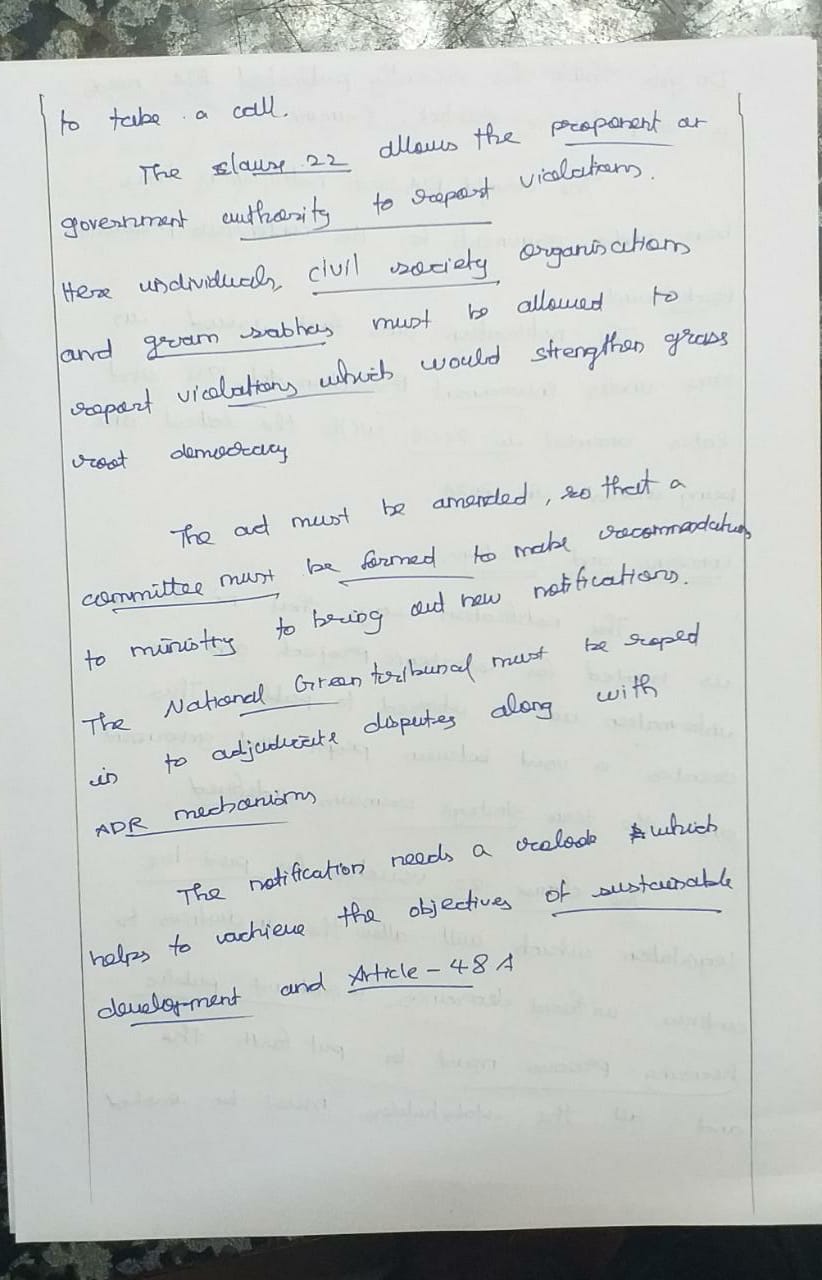 to take a call.
The clause 22 allows the proponent or
government authority to report violations.
Here individuals, civil society organisations
and gram sabhas must be allowed to
report violations which would strengthen grass
root democracy
The act must be amended, so that a
committee must be formed to make recommendations
to ministry to bring out new notifications.
The National Green tribunal must be roped
in to adjudicate disputes along with
ADR mechanisms
The notification needs a relook which
helps to achieve the objectives of sustainable
development and Article - 48 A